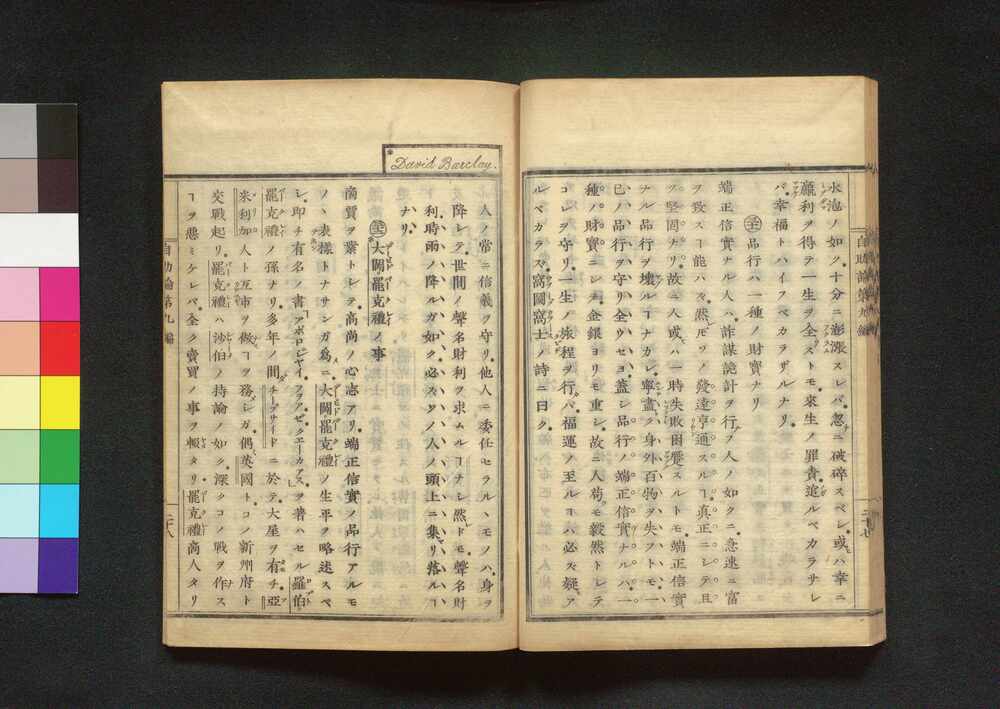 水泡ノ如ク、十分ニ澎漲スレバ、忽ニ破碎スベシ、或ハ幸ニ
贏利ヲ得テ一生ヲ全ストモ、來生ノ罪責追ルベカラザレ
バ、幸福トハイフベカラザルナリ、
品行ハ一種ノ財寶ナリ
端正信實ナル人ハ、詐謀詭計ヲ行フ人ノ如クニ、急速ニ富
ヲ致スヿ能ハズ、然レドモソノ發達亨通スルヿ真正ニシテ且
ツ堅固ナリ、故ニ人或ハ一時失敗困躓スルトモ、端正信實
ナル品行ヲ壞ルヿナカレ、寧盡ク身外百物ヲ失フトモ、一
己ノ品行ヲ守リ全ウセヨ、蓋シ品行ノ端正信實ナルハ、一
種ノ財寶ニシテ、金銀ヨリモ重シ、故ニ人苟モ毅然トシテ
コレヲ守リ、一生ノ旅程ヲ行ハバ、福運ノ至ルヿ必ズ疑ア
ルベカラズ、窩圖窩士ノ詩ニ曰ク、
自助論第九編
二十七
David Barclay.
人ノ常ニ信義ヲ守リ、他人ニ委任セラルヽモノハ、身ヲ
降シテ、世間ノ聲名財利ヲ求ムルヿナシ、然レドモ、聲名財
利、時雨ノ降ルガ如ク、必ズソノ人ノ頭上ニ集リ落ルヿ
ナリ、
大闢罷克禮ノ事
商賈ヲ業トシテ、高尚ノ心志アリ、端正信實ノ品行アルモ
ノヽ表樣トナサンガ爲ニ、大闢罷克禮ノ生平ヲ略述スベ
シ、即チ有名ノ書「アポロジヤイ、フヲア、ゼ、クエーカアス」ヲ著ハセル羅伯
罷克禮ノ孫ナリ、多年ノ間チープサイドニ於テ大屋ヲ有チ、亞
米利加人ト互市ヲ做スヿヲ務メシガ、偶英國ト、コノ新州府ト
交戰起リ、罷克禮ハ沙伯ノ持論ノ如ク、深クコノ戰ヲ作ス
ヿヲ惡ミケレバ、全ク賣買ノ事ヲ輟タリ、罷克禮商人タリ
自助論第九編
二十八